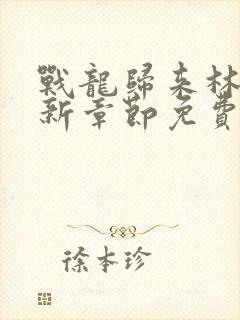 戰龍歸來林
新章節免費
徐本珍